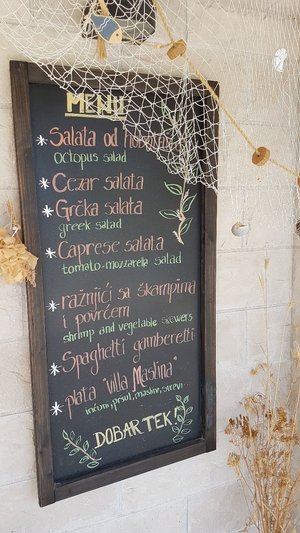 MENU
* Salata od
octopus salad
* Cezar salata
* Grčka salata
greek salad
* Caprese salata
tomato-mozzarella salad
* ražnjići sa škampima
i povrćem
shrimp and vegetable skewers
* Spaghetti gamberetti
* plata "villa Maslina"
inćuni, pršut, masline, sirevi
DOBAR TEK!